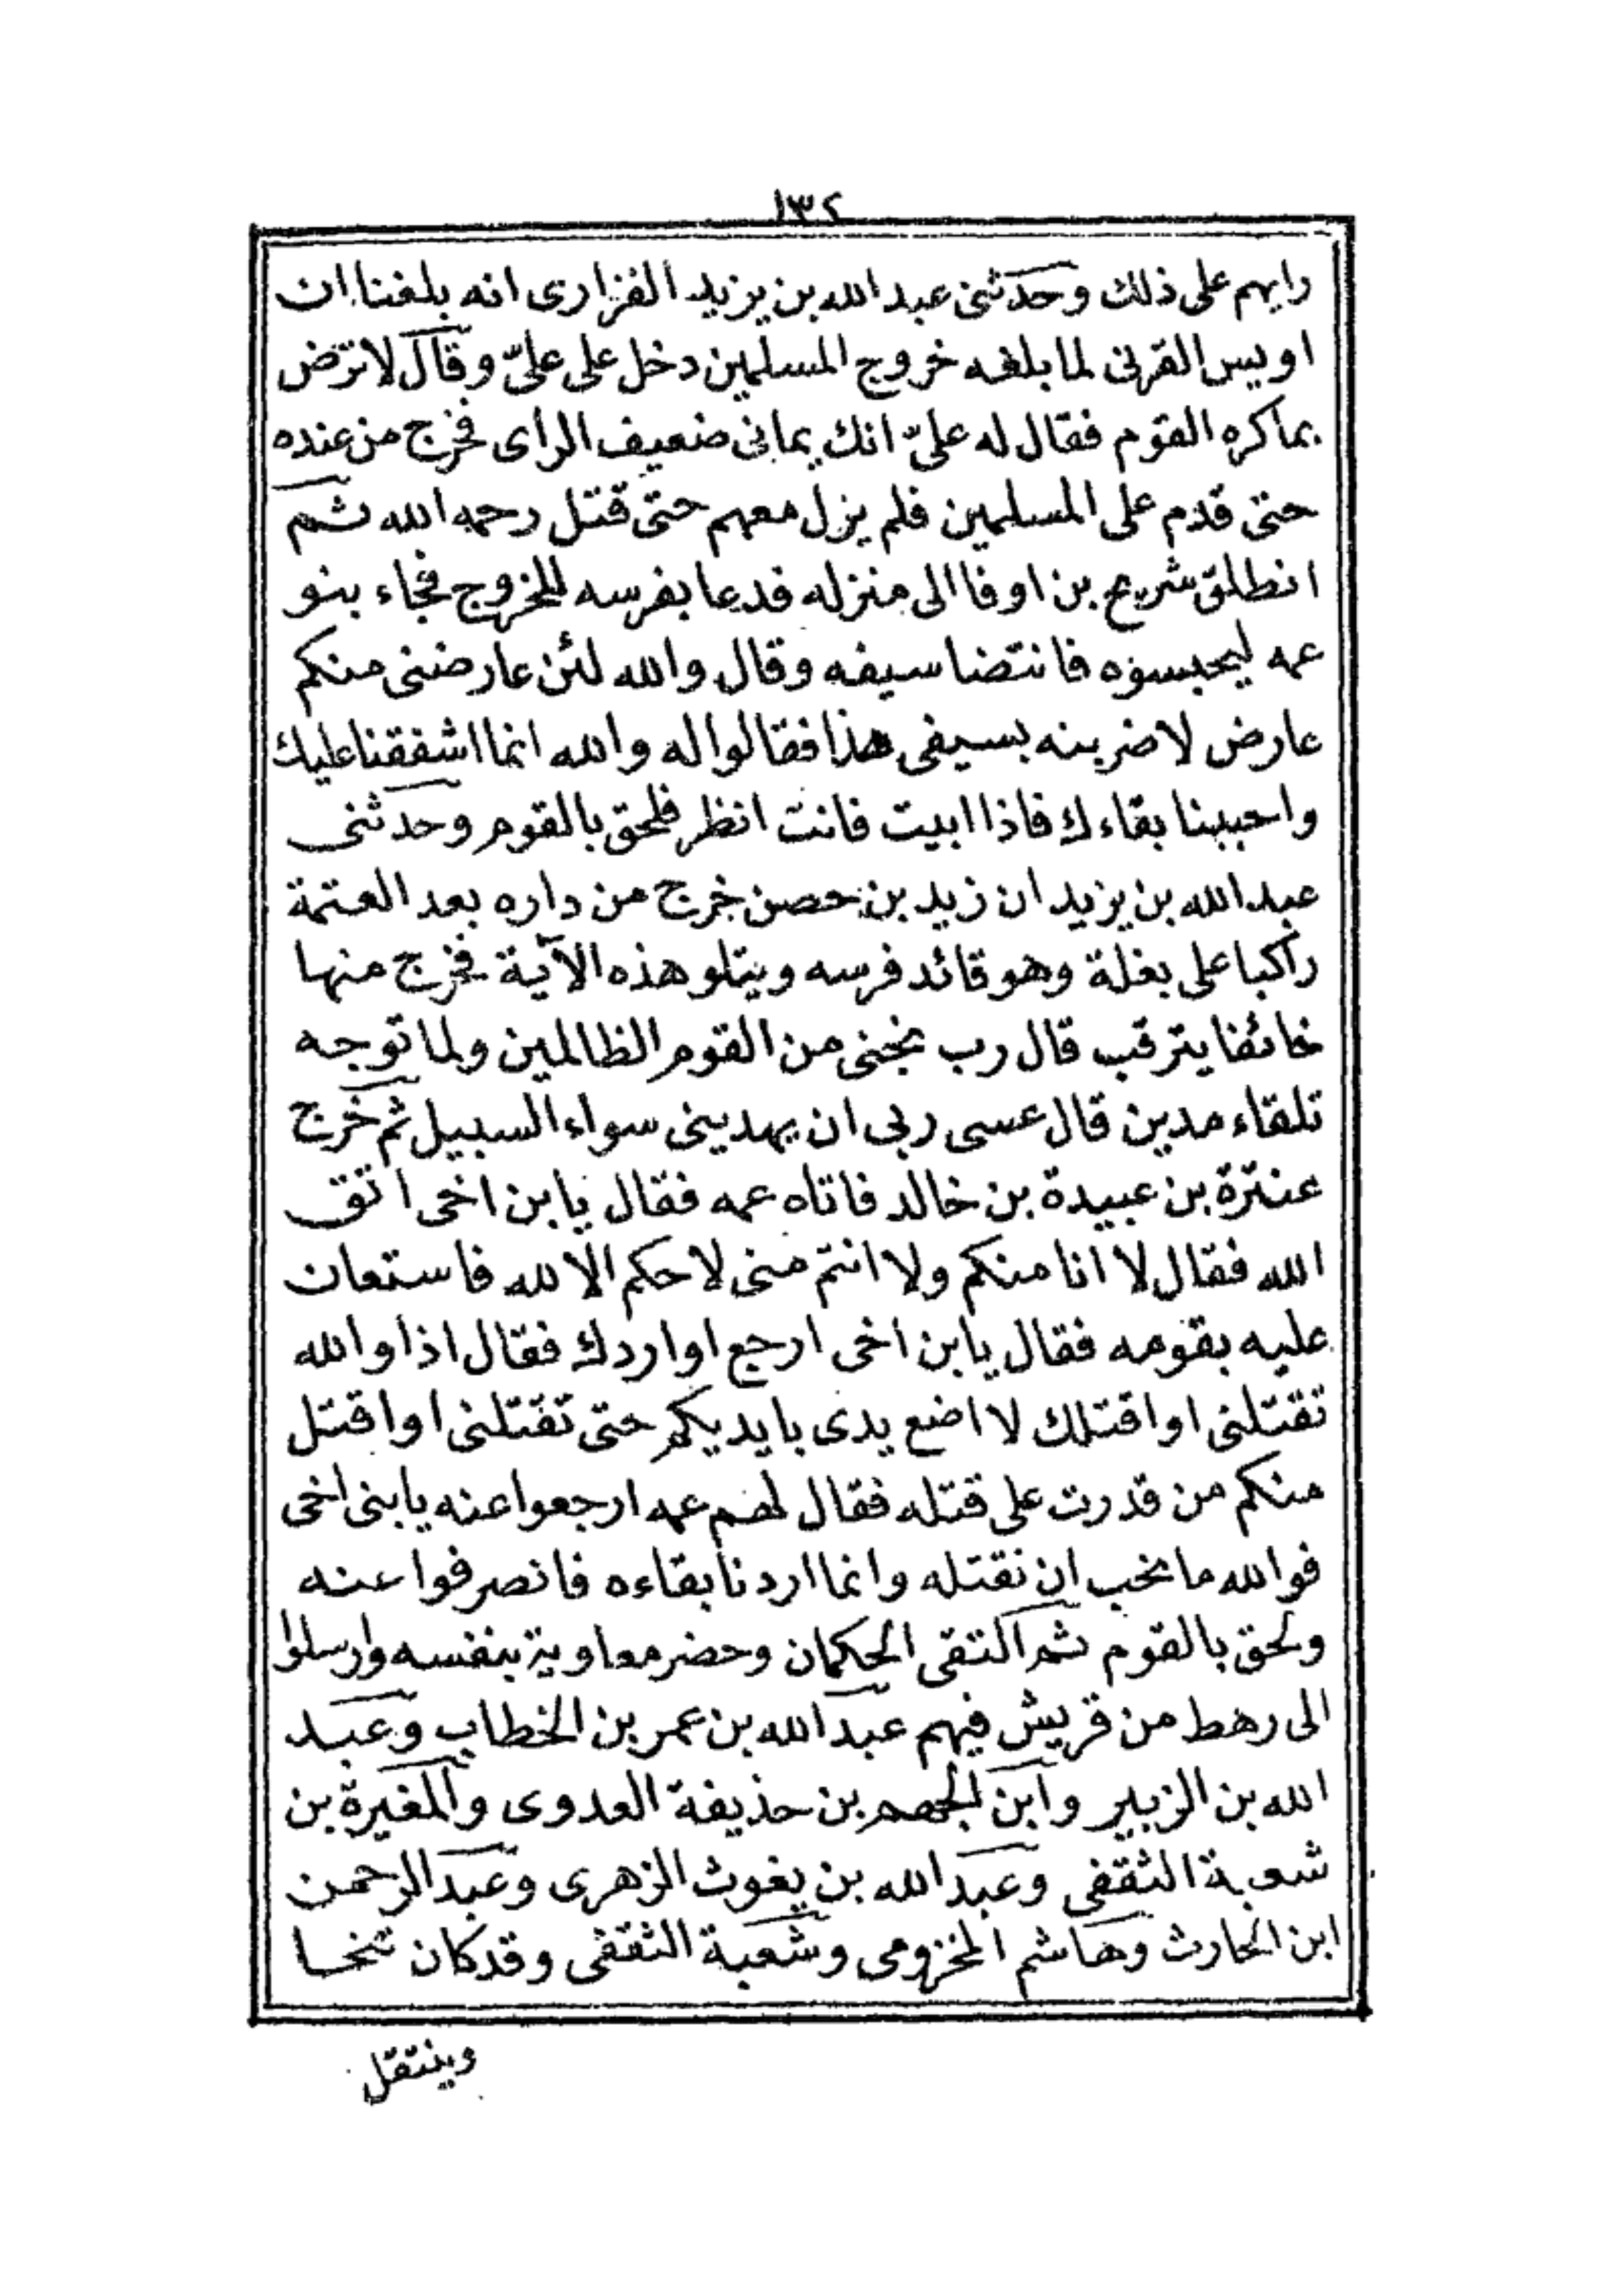 ١٣٢
رايهم على ذلك وحدثنى عبد الله بن يزيد الفزارى انه بلغنا ان
اويس القرنى لما بلغه خروج المسلمين دخل على علىّ وقال لا ترض
بما كره القوم فقال له علىّ انك يمانى ضعيف الراى فخرج من عنده
حتى قدم على المسلمين فلم يزل معهم حتى قتل رحمه الله ثم
انطلق شريح بن اوفا الى منزله فدعا بفرسه للخروج فجاء بنو
عمه ليحبسوه فانتضا سيفه وقال والله لئن عارضنى منكم
عارض لاضربنه بسيفى هذا فقالوا له والله انما اشفقنا عليك
واحببنا بقاءك فاذا ابيت فانت انظر فلحق بالقوم وحدثنى
عبد الله بن يزيد ان زيد بن حصن خرج من داره بعد العتمة
راكبا على بغلة وهو قائد فرسه ويتلو هذه الآية فخرج منها
خائفا يترقب قال رب نجنى من القوم الظالمين ولما توجه
تلقاء مدين قال عسى ربى ان يهدينى سواء السبيل ثم خرج
عنترة بن عبيدة بن خالد فاتاه عمه فقال يا بن اخى اتق
الله فقال لا انا منكم ولا انتم منى لا حكم الا لله فاستعان
عليه بقومه فقال يا بن اخى ارجع او اردك فقال اذا والله
تقتلنى او اقتلك لا اضع يدى بايديكم حتى تقتلنى او اقتل
منكم من قدرت على قتله فقال لهم عمه ارجعوا عنه يا بنى اخى
فوالله ما نحب ان نقتله وانما اردنا بقاءه فانصرفوا عنه
ولحق بالقوم ثم التقى الحكمان وحضر معاوية بنفسه وارسلوا
الى رهط من قريش فيهم عبد الله بن عمر بن الخطاب وعبد
الله بن الزبير وابن الجهم بن حذيفة العدوى والمغيرة بن
شعبة الثقفى وعبد الله بن يغوث الزهرى وعبد الرحمن
ابن الحارث وهاشم المخزومى وشعبة الثقفى وقد كان تنحا
وينتقل